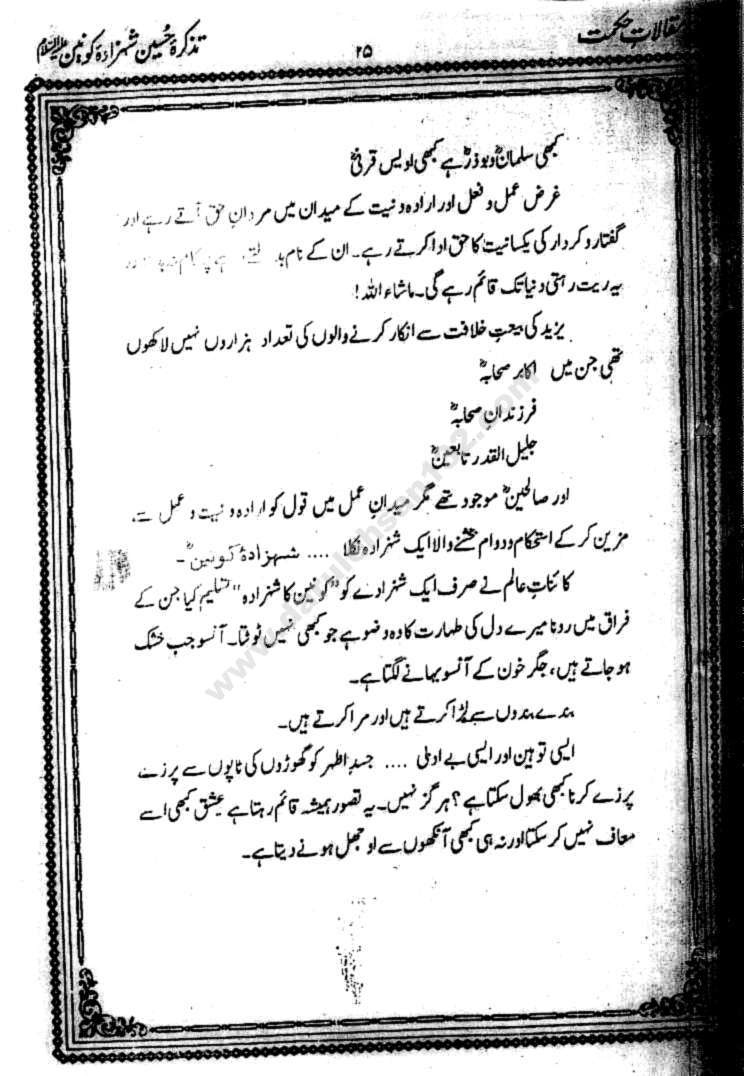 مقالاتِ حکمت
۲۵
تذکرۂ حُسین شہزادۂ کونین علیہ السلام
کبھی سلمانؓ و بوذرؓ ہے کبھی اویس قرنیؓ
غرض عمل و فعل اور ارادہ و نیت کے میدان میں مردانِ حق آتے رہے اور
گفتار و کردار کی یکسانیت کا حق ادا کرتے رہے۔ ان کے نام
یہ ریت رہتی دنیا تک قائم رہے گی۔ ماشاء اللہ!
یزید کی بیعتِ خلافت سے انکار کرنے والوں کی تعداد ہزاروں نہیں لاکھوں
تھی جن میں اکابر صحابہؓ
فرزندانِ صحابہؓ
جلیل القدر تابعینؓ
اور صالحینؓ موجود تھے مگر میدانِ عمل میں قول کو ارادہ و نیت و عمل سے
مزین کر کے استحکام و دوام بخشنے والا ایک شہزادہ نکلا .... شہزادۂ کونینؓ۔
کائناتِ عالم نے صرف ایک شہزادے کو "کونین کا شہزادہ" تسلیم کیا جن کے
فراق میں رونا میرے دل کی طہارت کا وہ وضو ہے جو کبھی نہیں ٹوٹتا۔ آنسو جب خشک
ہو جاتے ہیں، جگر خون کے آنسو بہانے لگتا ہے۔
بندے بندوں سے لڑا کرتے ہیں اور مرا کرتے ہیں۔
ایسی توہین اور ایسی بے ادبی .... جسدِ اطہر کو گھوڑوں کی ٹاپوں سے پرزے
پرزے کرنا کبھی بھول سکتا ہے؟ ہرگز نہیں۔ یہ تصور ہمیشہ قائم رہتا ہے عشق کبھی اسے
معاف نہیں کر سکتا اور نہ ہی کبھی آنکھوں سے اوجھل ہونے دیتا ہے۔